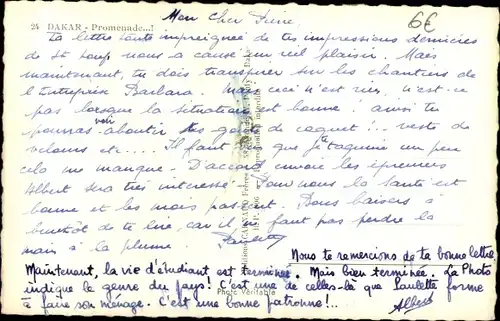 6€
24 DAKAR - Promenade...!
Mon cher Pierre
Ta lettre toute imprégnée de tes impressions dernières
de St Loup nous a causé un réel plaisir. Mais
maintenant, tu dois transpirer sur les chantiers de
l'Entreprise Barbara. Mais ceci n'est rien, n'est-ce
pas lorsque la situation est bonne! ainsi tu
pourras voir aboutir tes goûts de coquet!... veste de
velours etc... Il faut bien que je taquine un peu
cela me manque. D'accord envoie les épreuves
Albert sera très intéressé. Pour nous la santé est
bonne et les mois passent. Bons baisers à
bientôt de te lire, car il ne faut pas perdre la
main à la plume. Paulette
Nous te remercions de ta bonne lettre.
Maintenant, la vie d'étudiant est terminée. Mais bien terminée. La Photo
indique le genre du pays! C'est une de celles-là que Paulette forme
à faire son ménage. C'est une bonne patronne!..
Albert
Photo Véritable
Reproduction interdite